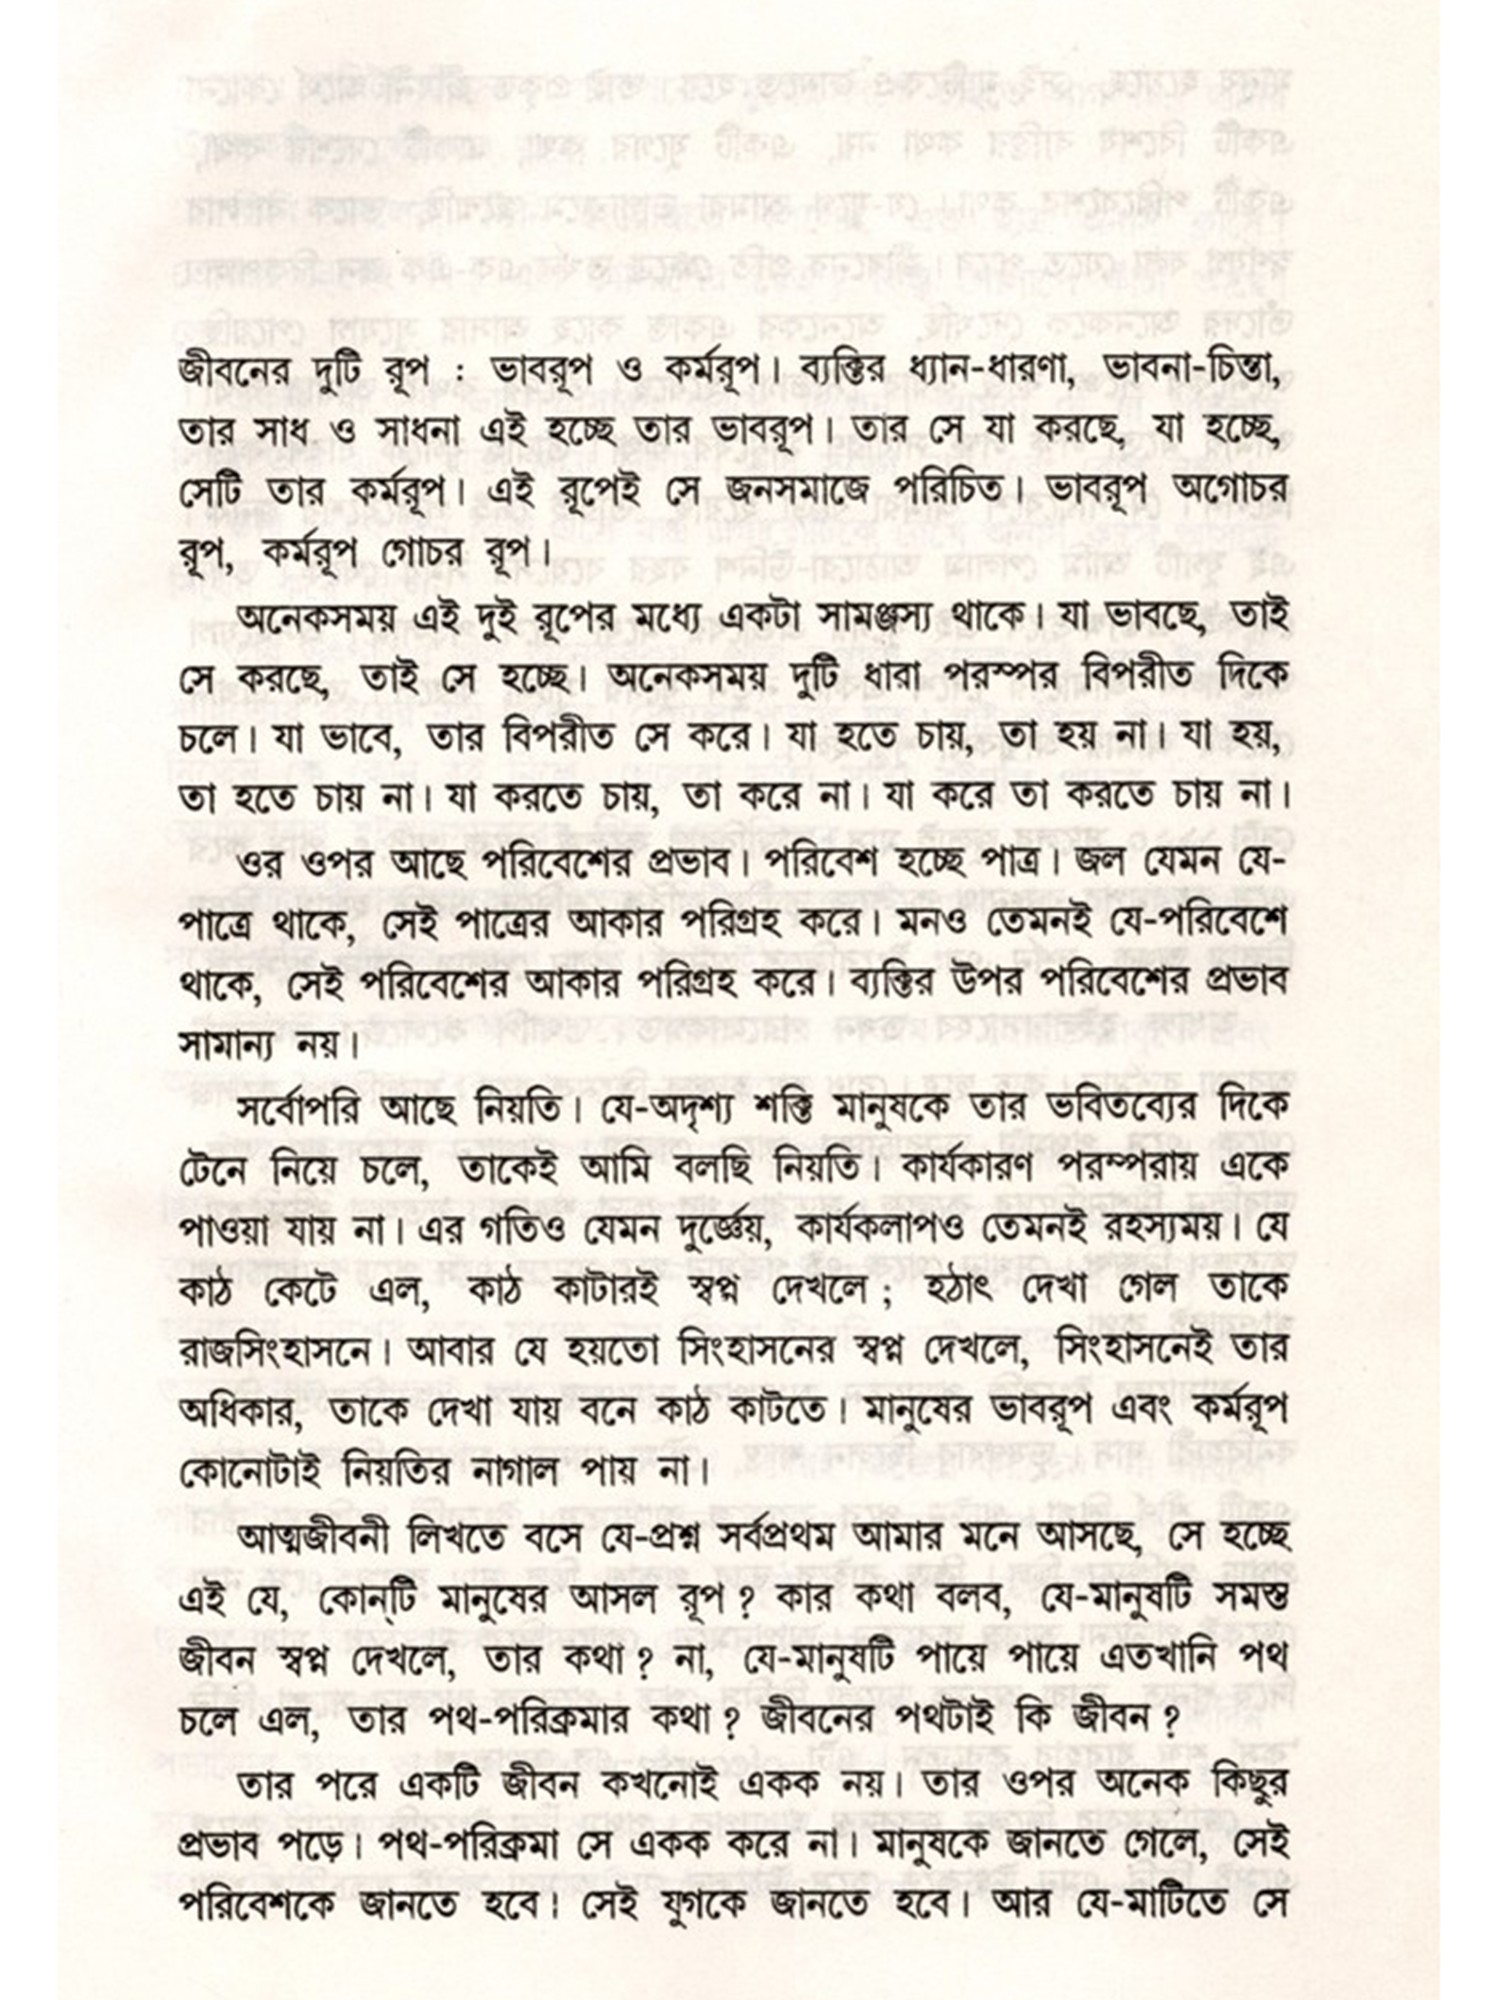 জীবনের দুটি রূপ : ভাবরূপ ও কর্মরূপ। ব্যক্তির ধ্যান-ধারণা, ভাবনা-চিন্তা,
তার সাধ ও সাধনা এই হচ্ছে তার ভাবরূপ। তার সে যা করছে, যা হচ্ছে,
সেটি তার কর্মরূপ। এই রূপেই সে জনসমাজে পরিচিত। ভাবরূপ অগোচর
রূপ, কর্মরূপ গোচর রূপ।
অনেকসময় এই দুই রূপের মধ্যে একটা সামঞ্জস্য থাকে। যা ভাবছে, তাই
সে করছে, তাই সে হচ্ছে। অনেকসময় দুটি ধারা পরস্পর বিপরীত দিকে
চলে। যা ভাবে, তার বিপরীত সে করে। যা হতে চায়, তা হয় না। যা হয়,
তা হতে চায় না। যা করতে চায়, তা করে না। যা করে তা করতে চায় না।
ওর ওপর আছে পরিবেশের প্রভাব। পরিবেশ হচ্ছে পাত্র। জল যেমন যে-
পাত্রে থাকে, সেই পাত্রের আকার পরিগ্রহ করে। মনও তেমনই যে-পরিবেশে
থাকে, সেই পরিবেশের আকার পরিগ্রহ করে। ব্যক্তির উপর পরিবেশের প্রভাব
সামান্য নয়।
সর্বোপরি আছে নিয়তি। যে-অদৃশ্য শক্তি মানুষকে তার ভবিতব্যের দিকে
টেনে নিয়ে চলে, তাকেই আমি বলছি নিয়তি। কার্যকারণ পরম্পরায় একে
পাওয়া যায় না। এর গতিও যেমন দুর্জ্ঞেয়, কার্যকলাপও তেমনই রহস্যময়। যে
কাঠ কেটে এল, কাঠ কাটারই স্বপ্ন দেখলে ; হঠাৎ দেখা গেল তাকে
রাজসিংহাসনে। আবার যে হয়তো সিংহাসনের স্বপ্ন দেখলে, সিংহাসনেই তার
অধিকার, তাকে দেখা যায় বনে কাঠ কাটতে। মানুষের ভাবরূপ এবং কর্মরূপ
কোনোটাই নিয়তির নাগাল পায় না।
আত্মজীবনী লিখতে বসে যে-প্রশ্ন সর্বপ্রথম আমার মনে আসছে, সে হচ্ছে
এই যে, কোন্‌টি মানুষের আসল রূপ ? কার কথা বলব, যে-মানুষটি সমস্ত
জীবন স্বপ্ন দেখলে, তার কথা ? না, যে-মানুষটি পায়ে পায়ে এতখানি পথ
চলে এল, তার পথ-পরিক্রমার কথা ? জীবনের পথটাই কি জীবন ?
তার পরে একটি জীবন কখনোই একক নয়। তার ওপর অনেক কিছুর
প্রভাব পড়ে। পথ-পরিক্রমা সে একক করে না। মানুষকে জানতে গেলে, সেই
পরিবেশকে জানতে হবে। সেই যুগকে জানতে হবে। আর যে-মাটিতে সে